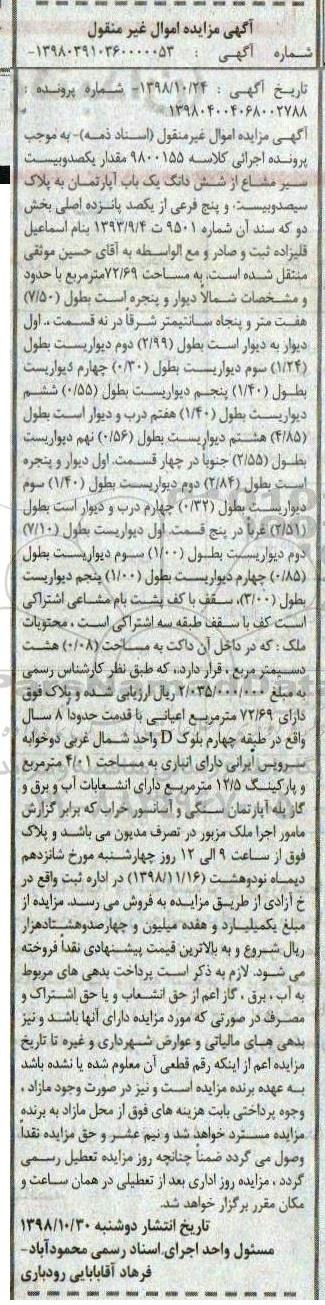 آگهی مزایده اموال غیر منقول
شماره آگهی : ۱۳۹۸۰۳۹۱۰۳۶۰۰۰۰۰۵۳-
تاریخ آگهی : ۱۳۹۸/۱۰/۲۴- شماره پرونده :
۱۳۹۸۰۴۰۰۴۰۶۸۰۰۲۷۸۸
آگهی مزایده اموال غیرمنقول (اسناد ذمه)- به موجب
پرونده اجرائی کلاسه ۹۸۰۰۱۵۵ مقدار یکصدوبیست
سیر مشاع از شش دانگ یک باب آپارتمان به پلاک
سیصدوبیست و پنج فرعی از یکصد پانزده اصلی بخش
دو که سند آن شماره ۹۵۰۱ ت ۱۳۹۳/۹/۴ بنام اسماعیل
قلیزاده ثبت و صادر و مع الواسطه به آقای حسین موثقی
منتقل شده است، به مساحت ۷۲/۶۹مترمربع با حدود
و مشخصات شمالاً دیوار و پنجره است بطول (۷/۵۰)
هفت متر و پنجاه سانتیمتر شرقاً در نه قسمت ،، اول
دیوار به دیوار است بطول (۲/۹۹) دوم دیواریست بطول
(۱/۲۴) سوم دیواریست بطول (۰/۳۰) چهارم دیواریست
بطول (۱/۴۰) پنجم دیواریست بطول (۰/۵۵) ششم
دیواریست بطول (۱/۴۰) هفتم درب و دیوار است بطول
(۴/۸۵) هشتم دیواریست بطول (۰/۵۶) نهم دیواریست
بطول (۲/۵۵) جنوباً در چهار قسمت، اول دیوار و پنجره
است بطول (۲/۸۴) دوم دیواریست بطول (۱/۴۰) سوم
دیواریست بطول (۰/۳۲) چهارم درب و دیوار است بطول
(۲/۵۱) غرباً در پنج قسمت، اول دیواریست بطول (۷/۱۰)
دوم دیواریست بطول (۱/۰۰) سوم دیواریست بطول
(۰/۸۵) چهارم دیواریست بطول (۱/۰۰) پنجم دیواریست
بطول (۳/۰۰)، سقف با کف پشت بام مشاعی اشتراکی
است کف با سقف طبقه سه اشتراکی است ، محتویات
ملک : که در داخل آن داکت به مساحت (۰/۰۸) هشت
دسیمتر مربع ، قرار دارد،، که طبق نظر کارشناس رسمی
به مبلغ ۲/۰۳۵/۰۰۰/۰۰۰ ریال ارزیابی شده و پلاک فوق
دارای ۷۲/۶۹ مترمربع اعیانی با قدمت حدوداً ۸ سال
واقع در طبقه چهارم بلوک D واحد شمال غربی دوخوابه
سرویس ایرانی دارای انباری به مساحت ۴/۰۱ مترمربع
و پارکینگ ۱۲/۵ مترمربع دارای انشعابات آب و برق و
گاز پله آپارتمان سنگی و آسانسور خراب که برابر گزارش
مامور اجرا ملک مزبور در تصرف مدیون می باشد و پلاک
فوق از ساعت ۹ الی ۱۲ روز چهارشنبه مورخ شانزدهم
دیماه نودوهشت (۱۳۹۸/۱۱/۱۶) در اداره ثبت واقع در
خ آزادی از طریق مزایده به فروش می رسد، مزایده از
مبلغ یکمیلیارد و هفده میلیون و چهارصدوهشتادهزار
ریال شروع و به بالاترین قیمت پیشنهادی نقداً فروخته
می شود. لازم به ذکر است پرداخت بدهی های مربوط
به آب ، برق ، گاز اعم از حق انشعاب و یا حق اشتراک و
مصرف در صورتی که مورد مزایده دارای آنها باشد و نیز
بدهی های مالیاتی و عوارض شهرداری و غیره تا تاریخ
مزایده اعم از اینکه رقم قطعی آن معلوم شده یا نشده باشد
به عهده برنده مزایده است و نیز در صورت وجود مازاد ،
وجوه پرداختی بابت هزینه های فوق از محل مازاد به برنده
مزایده مسترد خواهد شد و نیم عشر و حق مزایده نقداً
وصول می گردد ضمناً چنانچه روز مزایده تعطیل رسمی
گردد ، مزایده روز اداری بعد از تعطیلی در همان ساعت و
مکان مقرر برگزار خواهد شد.
تاریخ انتشار دوشنبه ۱۳۹۸/۱۰/۳۰
مسئول واحد اجرای اسناد رسمی محمودآباد-
فرهاد آقابابایی رودباری